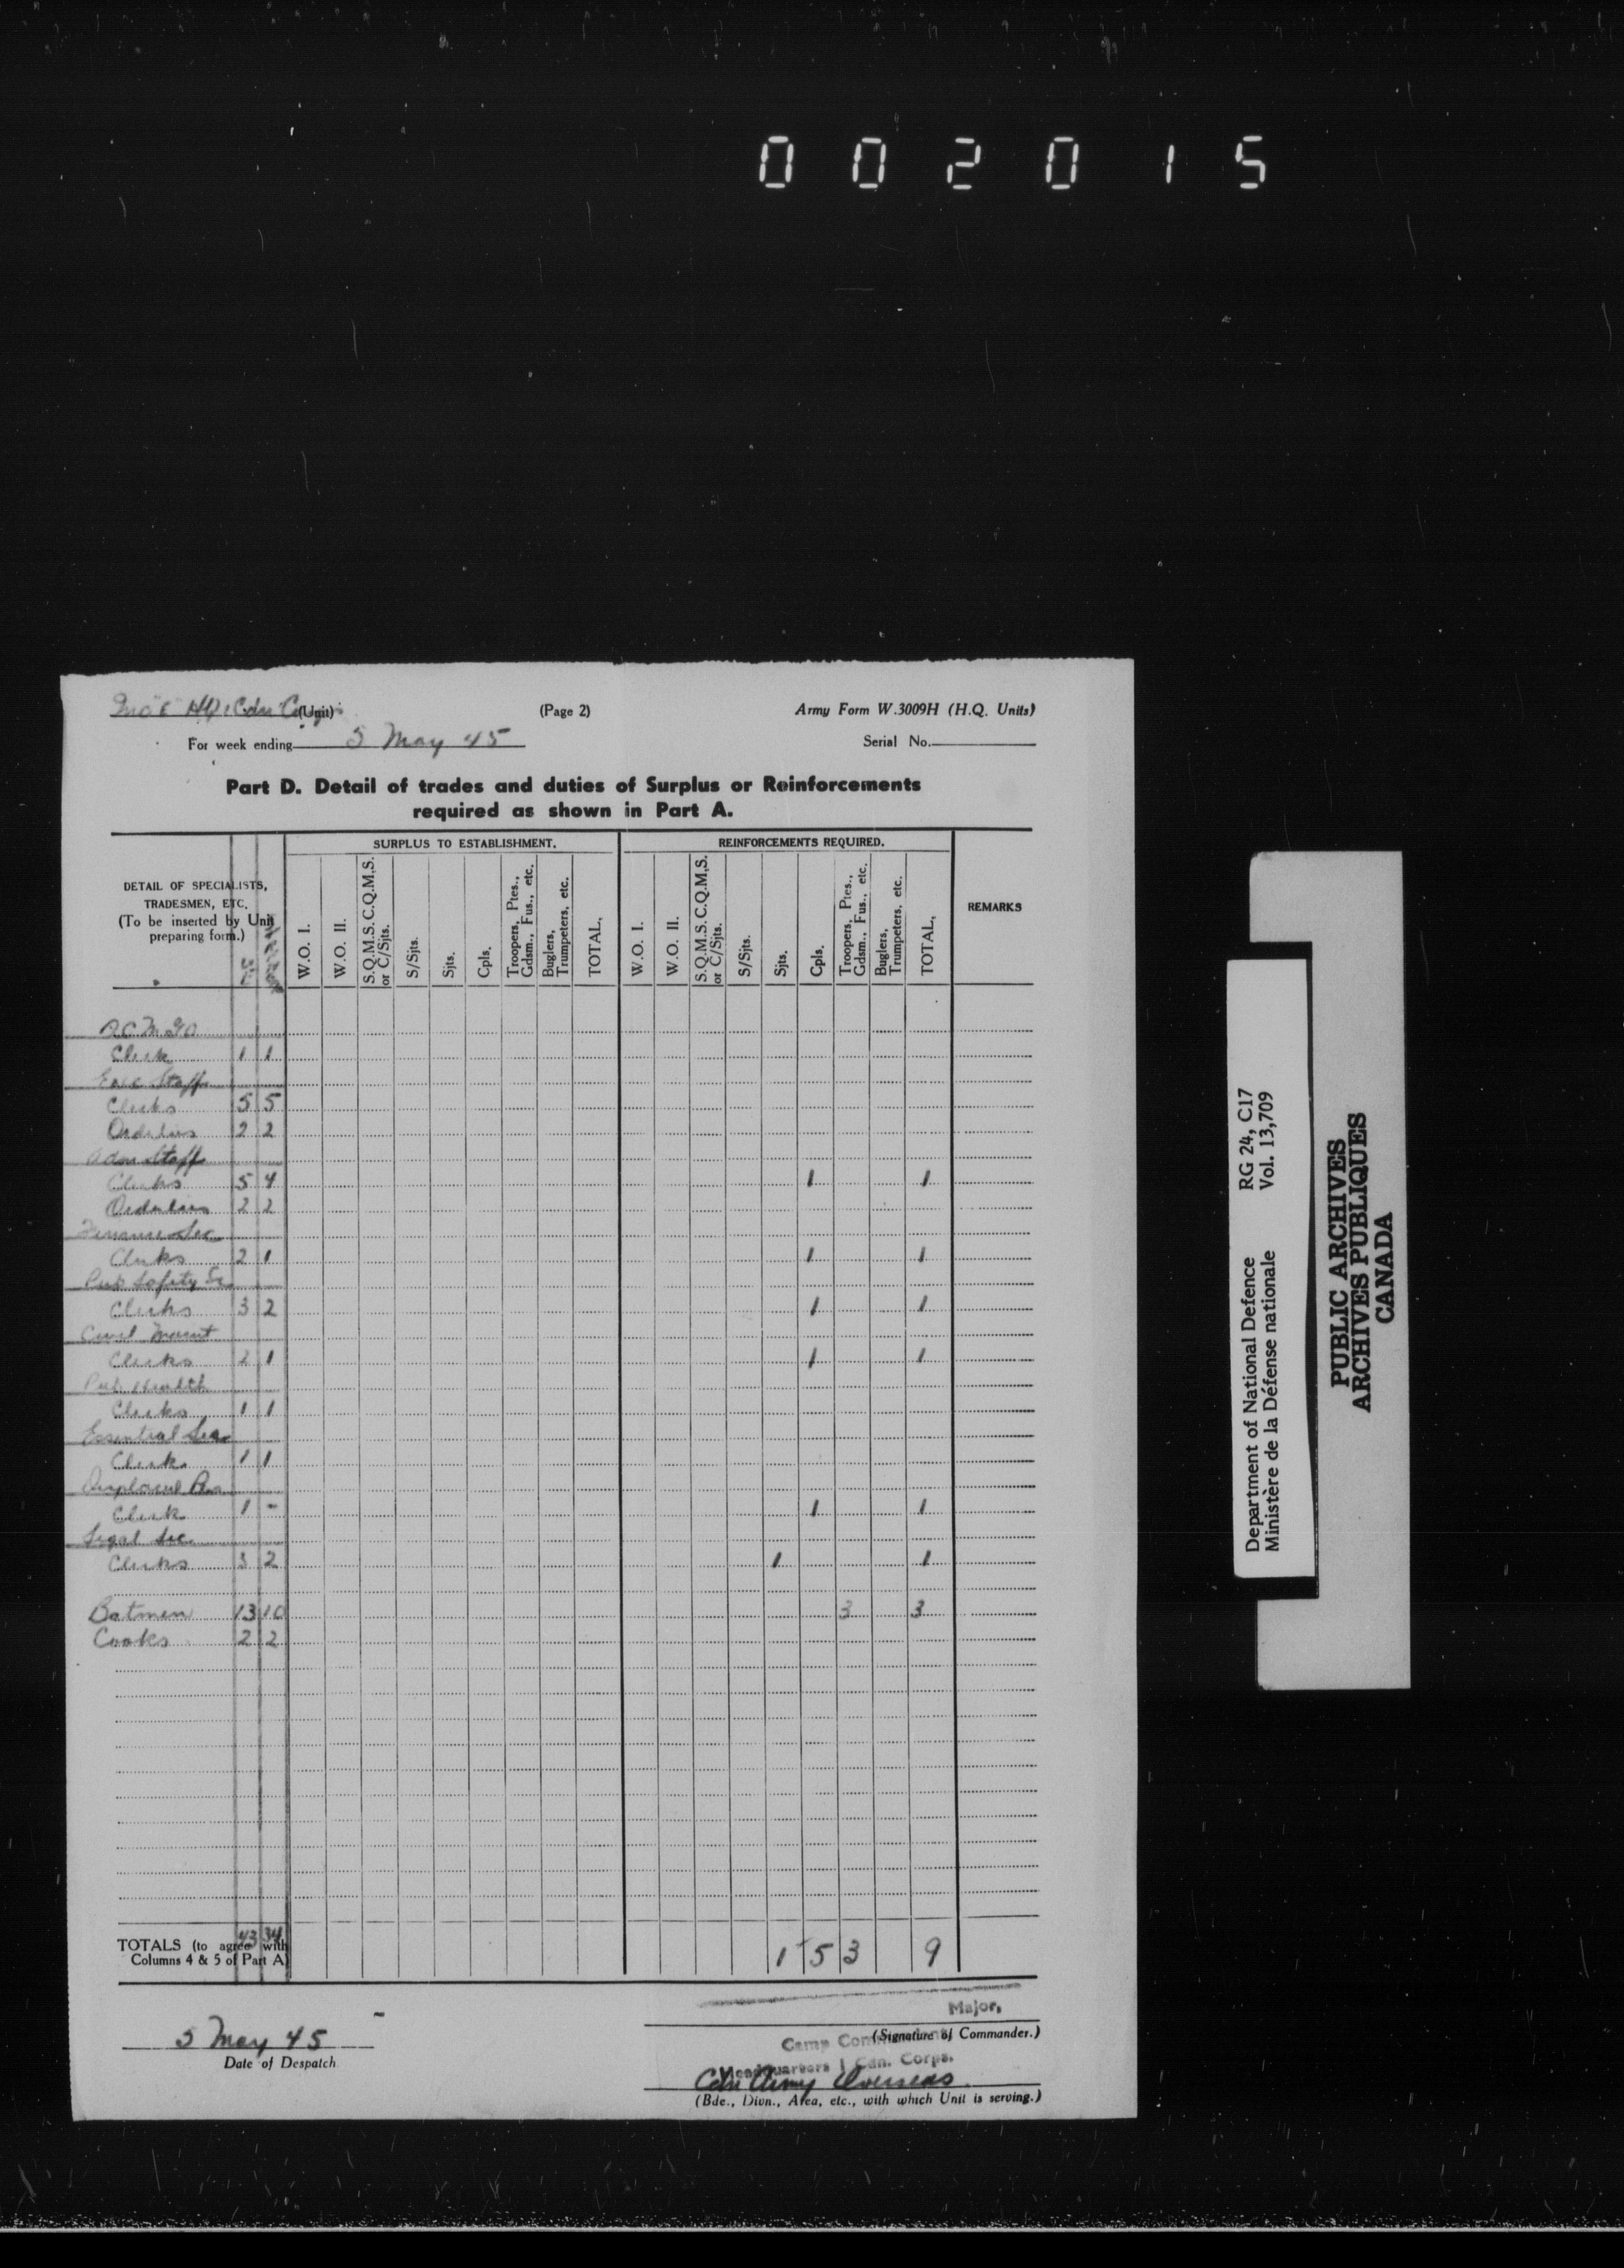 002015
HQ 1 Cdn Corps (Unit)
(Page 2)
Army Form W.3009H (H.Q. Units)
For week ending 5 May 45
Serial No.
Part D. Detail of trades and duties of Surplus or Reinforcements
required as shown in Part A.
DETAIL OF SPECIALISTS,
TRADESMEN, ETC.
(To be inserted by Unit
preparing form.)
SURPLUS TO ESTABLISHMENT.
W.O. I.
W.O. II.
S.Q.M.S. C.Q.M.S.
or C/Sjts.
S/Sjts.
Sjts.
Cpls.
Troopers, Ptes.,
Gdsm., Fus., etc.
Buglers,
Trumpeters, etc.
TOTAL.
REINFORCEMENTS REQUIRED.
W.O. I.
W.O. II.
S.Q.M.S. C.Q.M.S.
or C/Sjts.
S/Sjts.
Sjts.
Cpls.
Troopers, Ptes.,
Gdsm., Fus., etc.
Buglers,
Trumpeters, etc.
TOTAL.
REMARKS
Clerk 1 1
Exec Staff
Clerks 5 5
Orderlies 2 2
Adm Staff
Clerks 5 4 1 1
Orderlies 2 2
Finance Sec
Clerks 2 1 1 1
Pub Safety Sec
Clerks 3 2 1 1
Clerks 2 1 1 1
Pub Health
Clerks 1 1
Essential Ser
Clerk 1 1
Displaced Per
Clerk 1 - 1 1
Legal Sec
Clerks 3 2 1 1
Batmen 13 10 3 3
Cooks 2 2
43 34
TOTALS (to agree with
Columns 4 & 5 of Part A)
1 5 3 9
5 May 45
Date of Despatch
Major,
(Signature of Commander.)
Camp Commandant
Headquarters 1 Cdn. Corps.
Cdn Army Overseas
(Bde., Divn., Area, etc., with which Unit is serving.)
Department of National Defence RG 24, C17
Ministère de la Défense nationale Vol. 13,709
PUBLIC ARCHIVES
ARCHIVES PUBLIQUES
CANADA